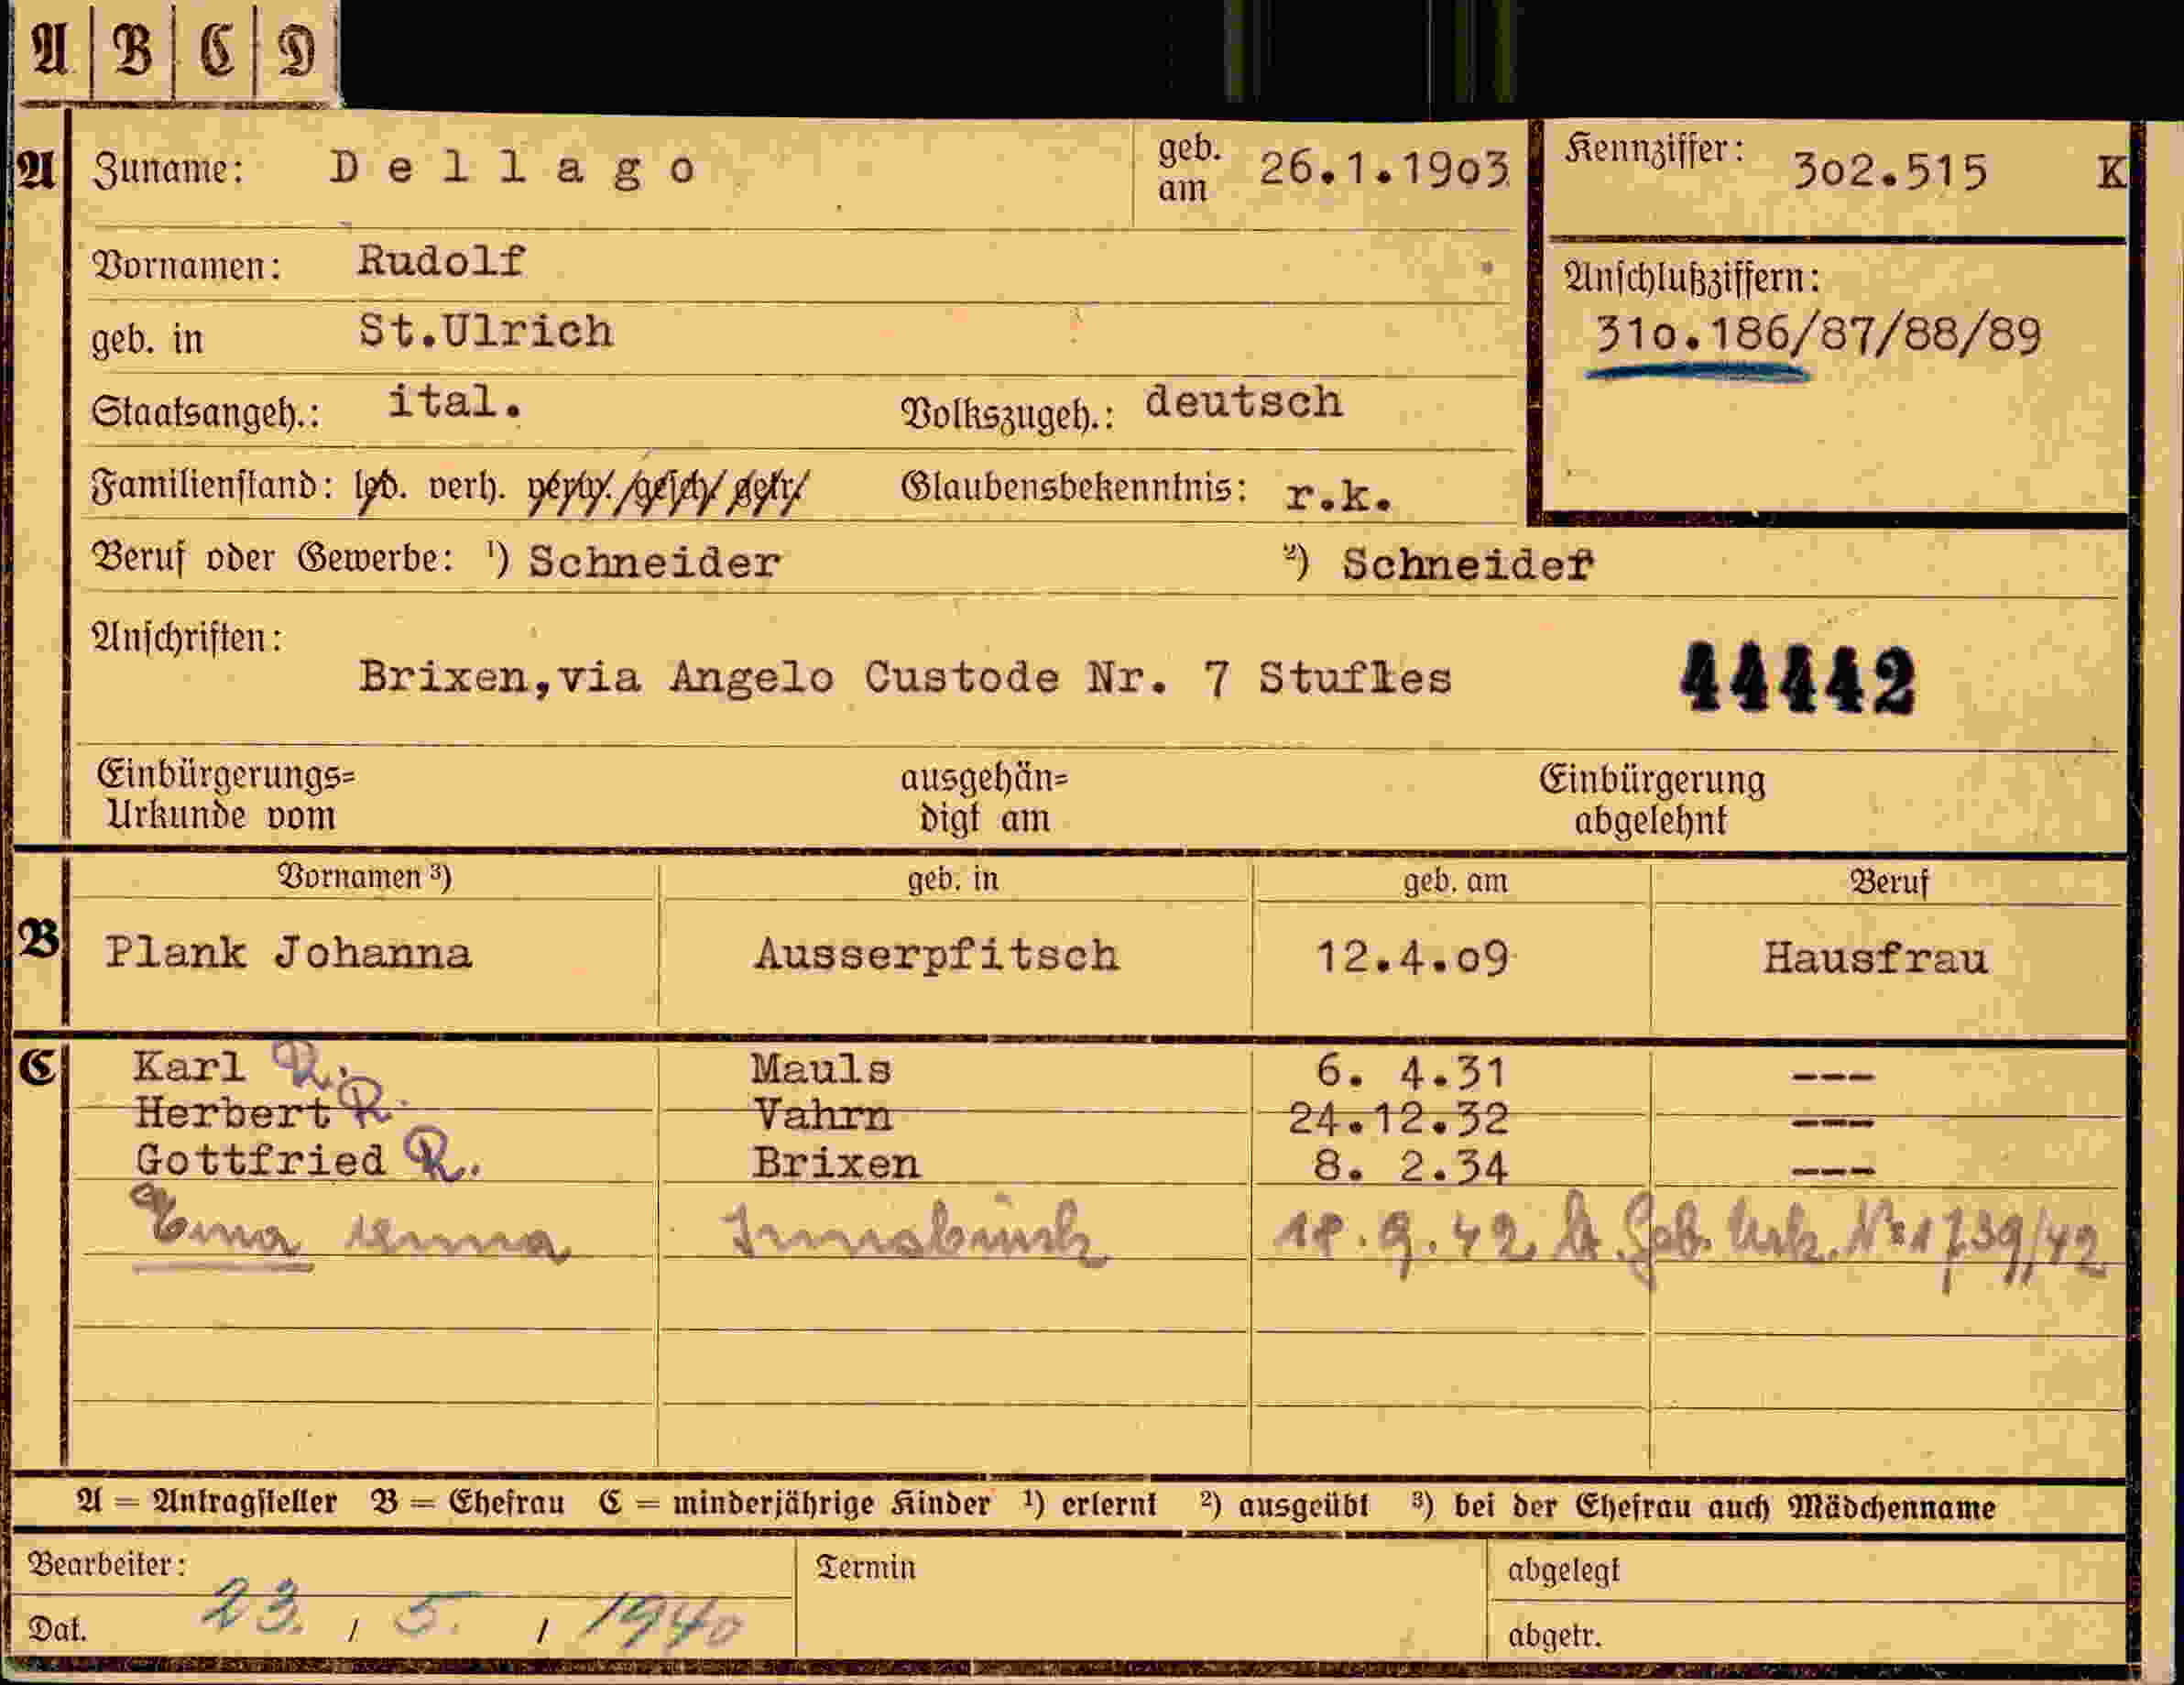 A B C D
A Zuname: Dellago geb. am 26.1.1903 Kennziffer: 302.515 K
Vornamen: Rudolf
Anschlußziffern:
geb. in St.Ulrich 310.186/87/88/89
Staatsangeh.: ital. Volkszugeh.: deutsch
Familienstand: led. verh. verw. gesch. getr. Glaubensbekenntnis: r.k.
Beruf oder Gewerbe: ¹) Schneider ²) Schneider
Anschriften:
Brixen,via Angelo Custode Nr. 7 Stufles 44442
Einbürgerungs= ausgehän= Einbürgerung
Urkunde vom digt am abgelehnt
Vornamen ³) geb. in geb. am Beruf
B Plank Johanna Ausserpfitsch 12.4.09 Hausfrau
C Karl R. Mauls 6. 4.31 ---
Herbert R. Vahrn 24.12.32 ---
Gottfried R. Brixen 8. 2.34 ---
Anna Innsbruck 18.9.42 lt. Geb. Urk. No 1739/42
A = Antragsteller B = Ehefrau C = minderjährige Kinder ¹) erlernt ²) ausgeübt ³) bei der Ehefrau auch Mädchenname
Bearbeiter: Termin abgelegt
Dat. 23. / 5. / 1940 abgetr.